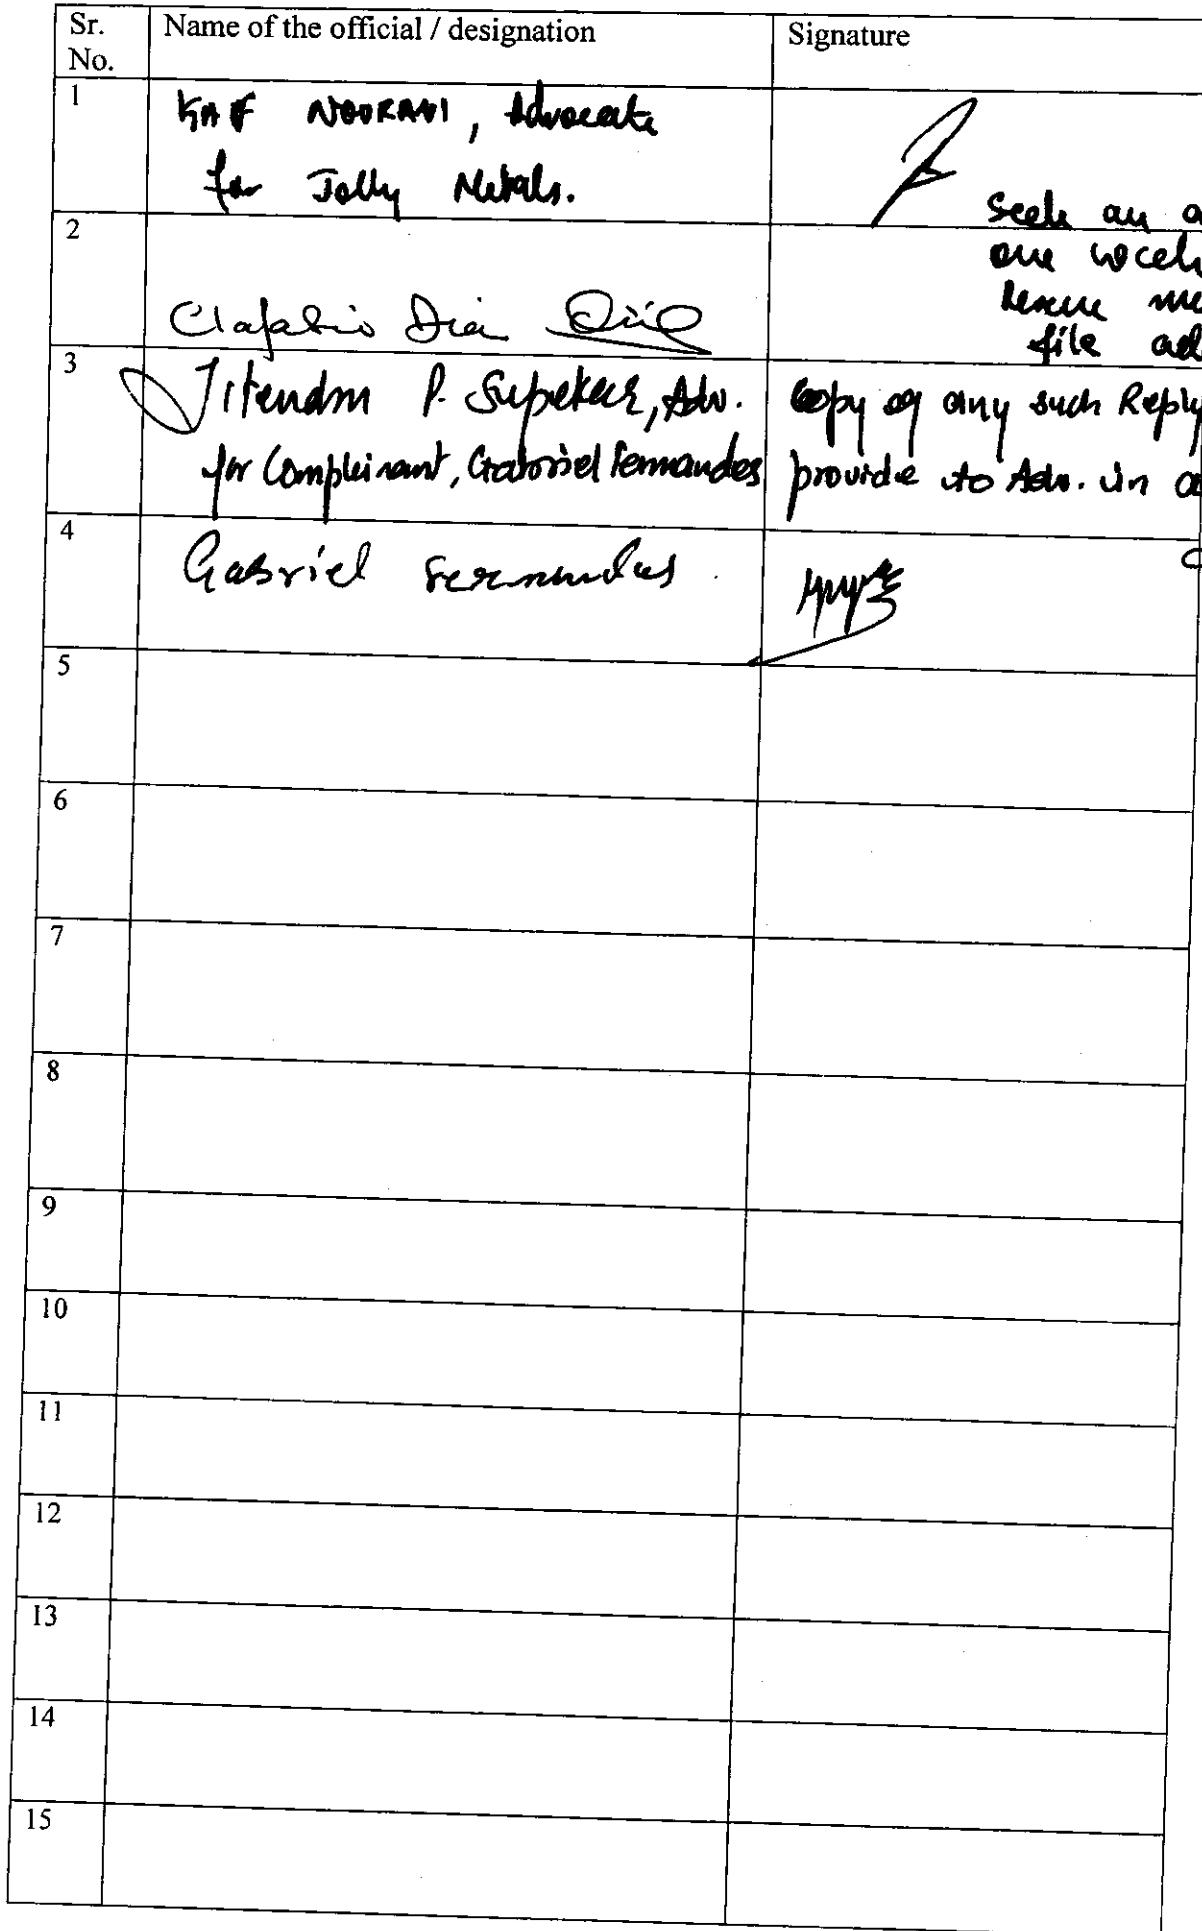 Sr. No.
Name of the official / designation
Signature
1
NOORANI, Advocate
for Jolly Metals.
seek an a
one
file ad
2
Dia
3
Jitendra P. Supekar, Adv.
for Complainant, Gabriel Fernandes
Copy of any such Reply
provide to Adv. in a
4
Gabriel Fernandes
5
6
7
8
9
10
11
12
13
14
15